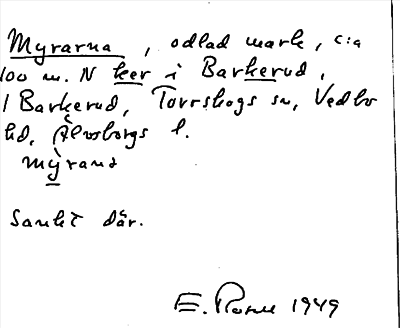 Myrarna, odlad mark, c:a
100 m. N ker i Barkerud,
1 Barkerud, Torrskogs sn, Vedbo
hd, Älvsborgs l.
mỳrana
Sankt där.
E. 1949